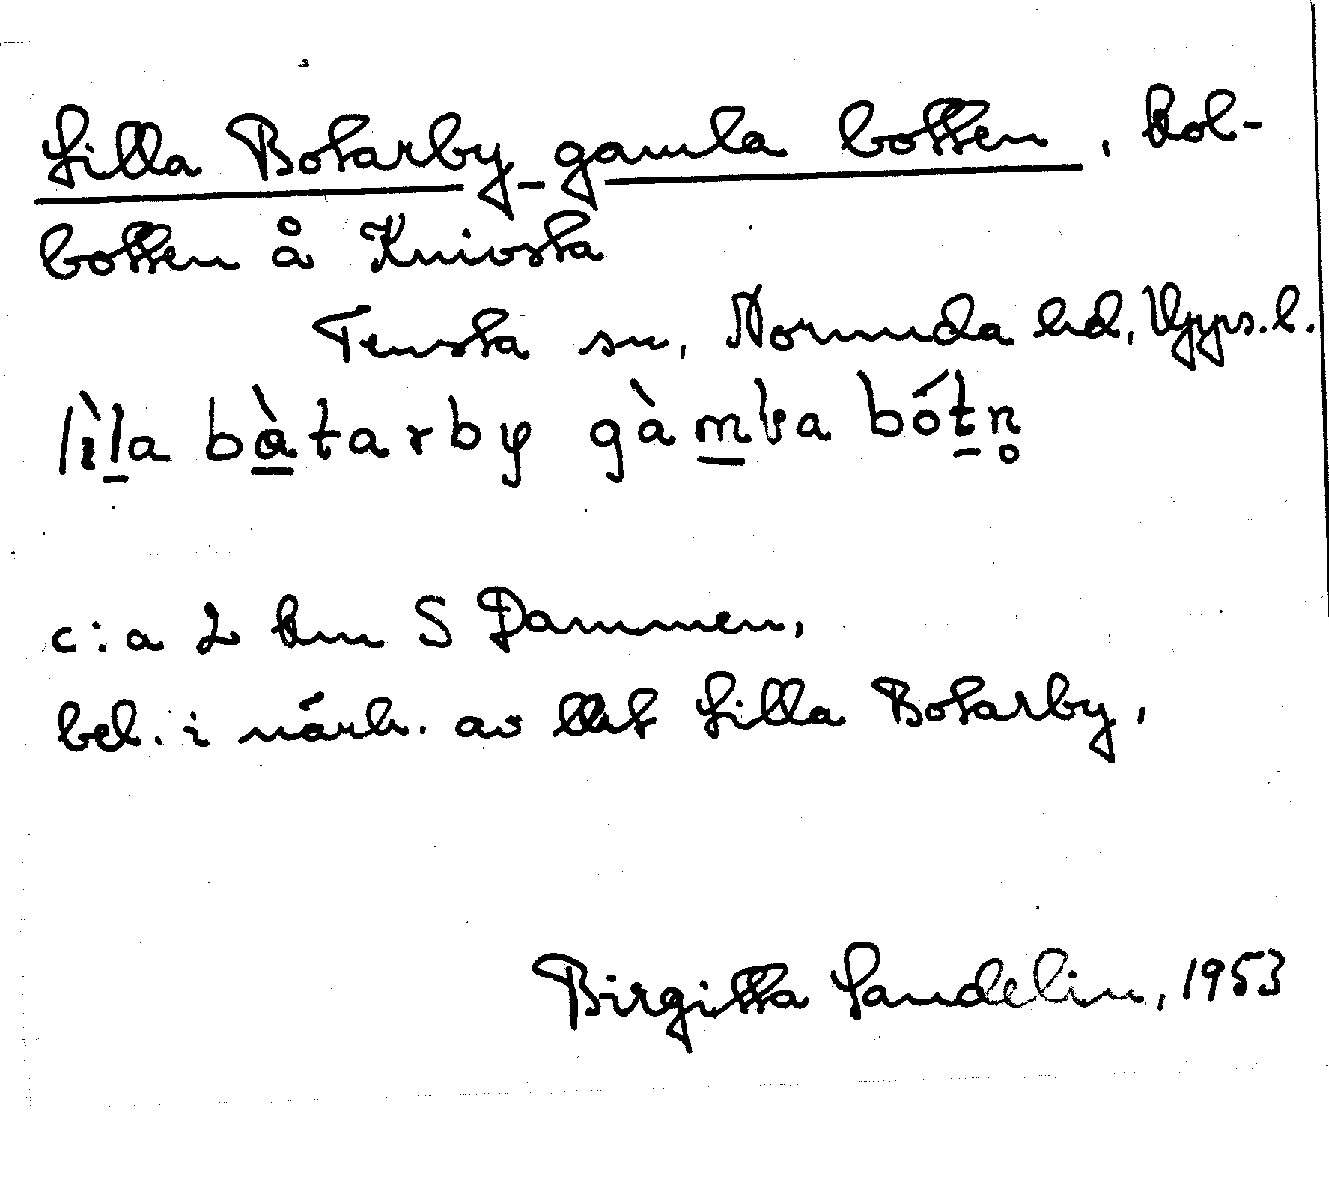 Lilla Botarby gamla botten, kol-
botten å Knivsta
Tensta sn, Norunda hd, Upps. l.
lìla bàtarby gàmla bótn̥
c:a 2 km S Dammen,
bel. i närh. av llt Lilla Botarby,
Birgitta Sandelin, 1953